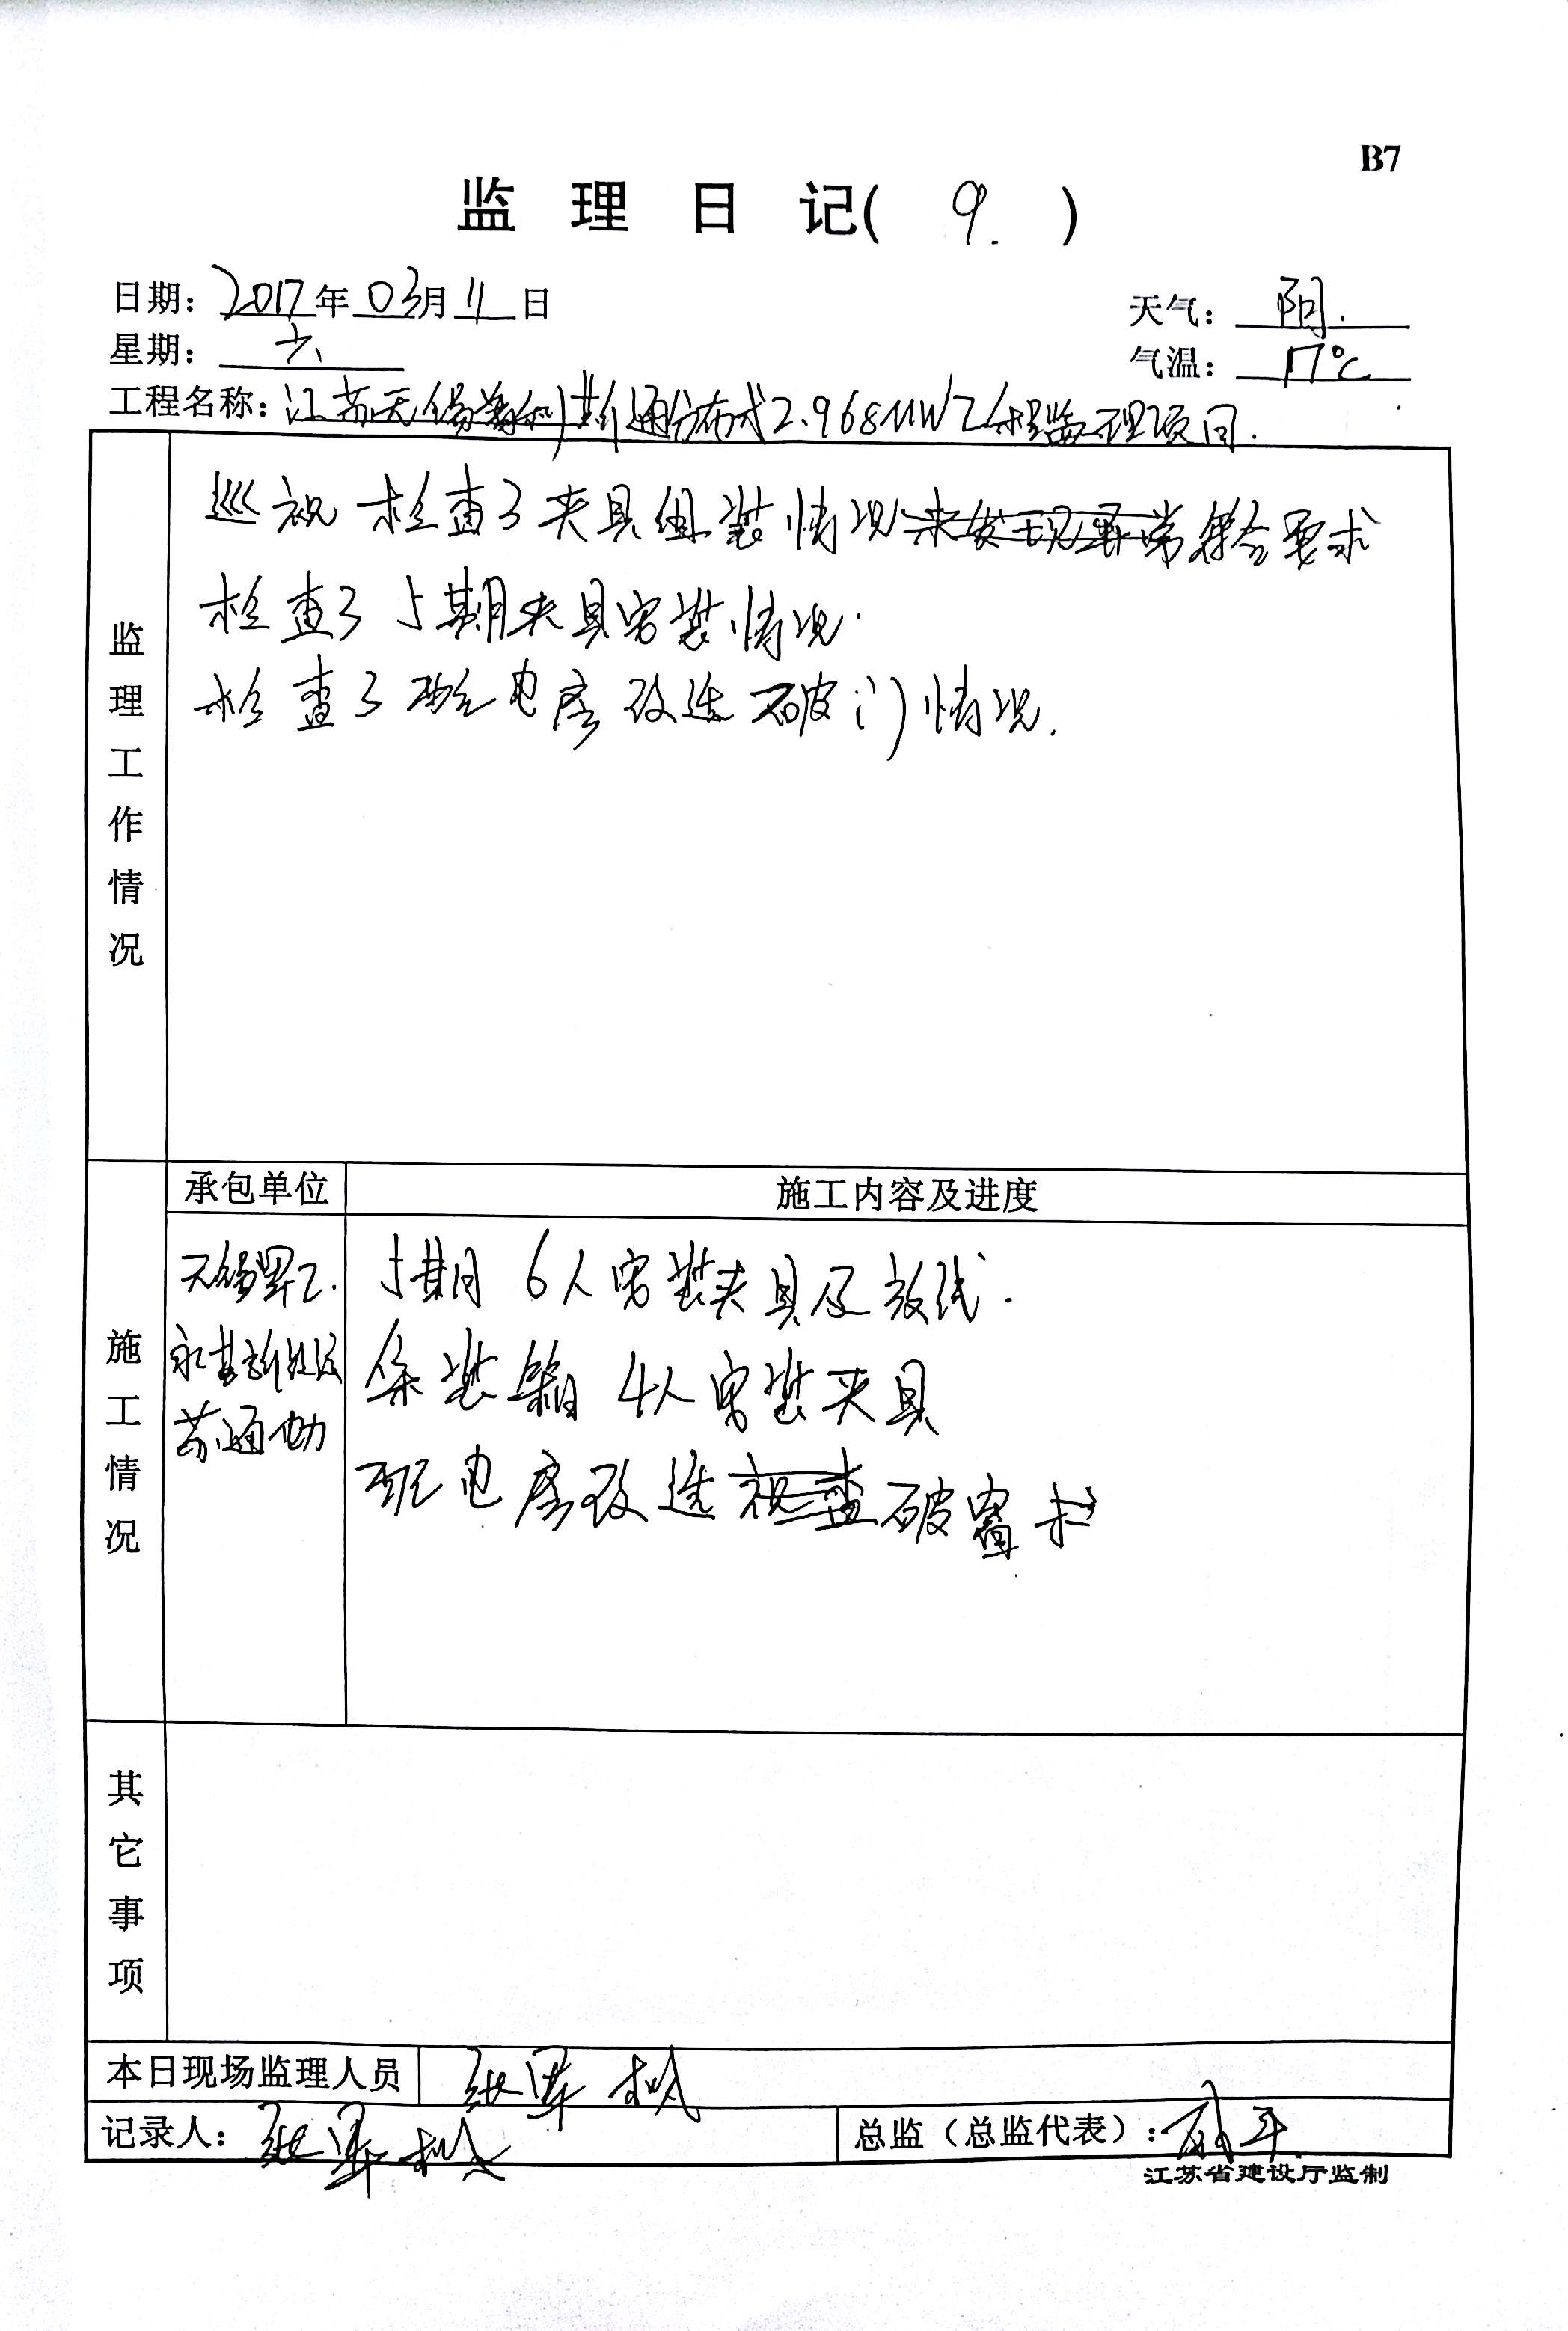 B7
监 理 日 记( 9. )
日期: 2017年03月11日
天气: 阴.
星期: 六
气温: 17℃
工程名称: 江苏无锡 通分布式2.968MW工程监理项目.
监理工作情况
巡视检查了夹具组装情况未发现异常符合要求
检查了5期夹具安装情况.
检查了配电房改造破门情况.
施工情况
承包单位
施工内容及进度
无锡
5期 6人安装夹具及放线.
永基
集装箱 4人安装夹具
苏通
配电房改造 破窗
其它事项
本日现场监理人员
记录人:
总监(总监代表):
江苏省建设厅监制